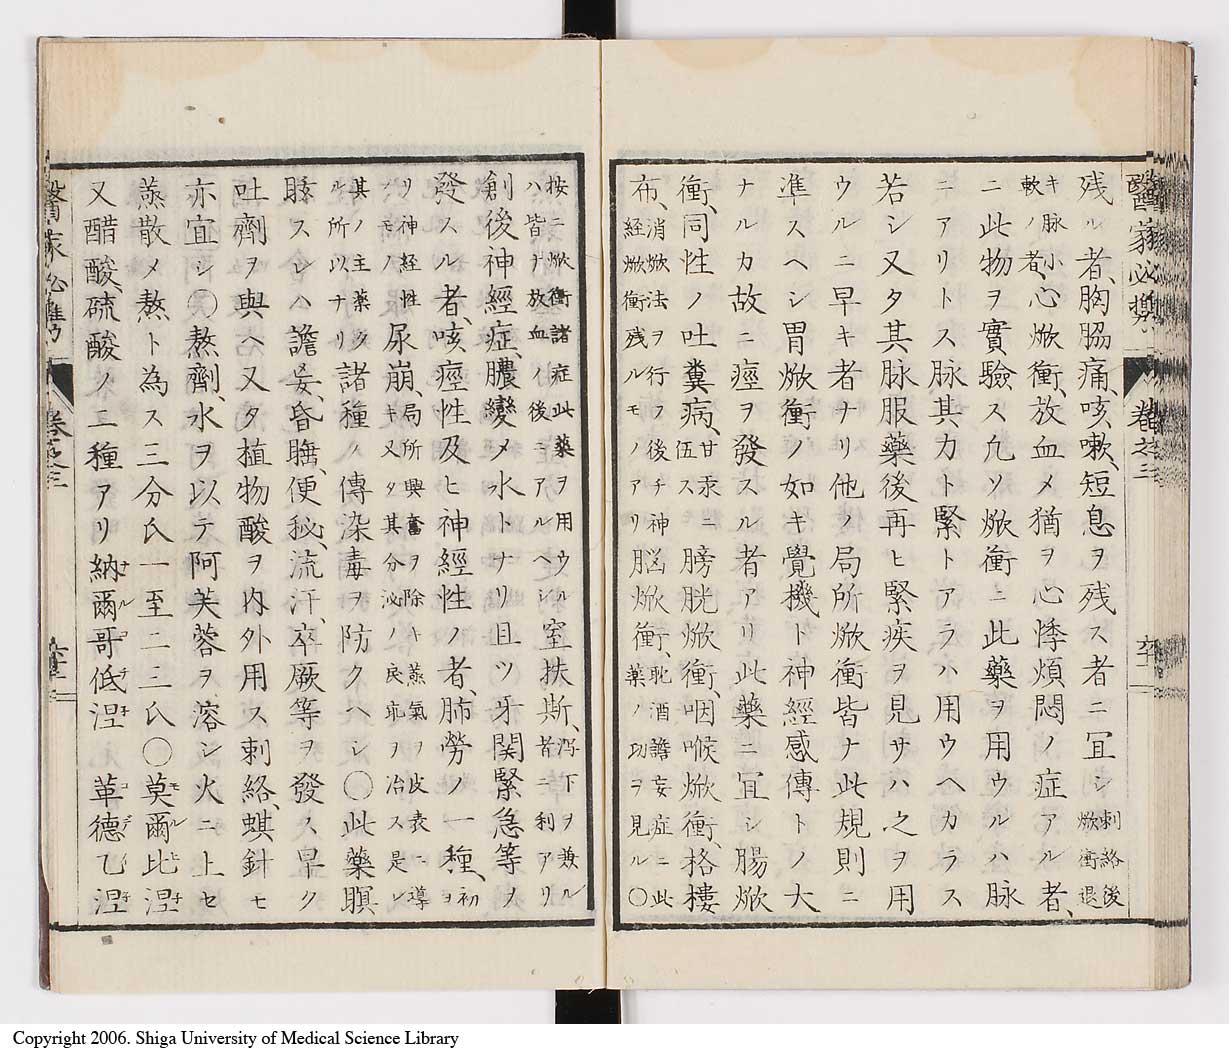 醫家必携 卷之三
残ル者、胸脇痛、咳嗽、短息ヲ残ス者ニ冝シ刺絡後焮衝退
キ脉小、軟ノ者、心焮衝、放血メ猶ヲ心悸煩悶ノ症アル者、
ニ此物ヲ實驗ス凢ソ焮衝ニ此藥ヲ用ウルハ脉
ニアリトス脉、其カト緊トアラハ用ウヘカラス
若シ又タ其脉服藥後再ヒ緊疾ヲ見サハ之ヲ用
ウルニ早キ者ナリ他ノ局所焮衝皆ナ此規則ニ
準スヘシ胃焮衝ノ如キ覺機ト神經感傳トノ大
ナルカ故ニ痙ヲ發スル者アリ此藥ニ冝シ腸焮
衝、同性ノ吐糞病、甘汞ニ伍ス膀胱焮衝、咽喉焮衝、格樓
布、消焮法ヲ行フ後チ神經焮衝残ルモノアリ脳焮衝、耽酒譫妄症ニ此藥ノ功ヲ見ル〇
按ニ焮衝諸症此藥ヲ用ウルハ皆ナ放血ノ後ニアルヘシ窒扶斯、瀉下ヲ兼ル者ニ利アリ
創後神經症、膿變メ水トナリ且ツ牙関緊急等ヲ
發スル者、咳、痙性及ヒ神經性ノ者、肺勞ノ一種、初
リ神経性ノモノ尿崩、局所興奮ヲ除キ又タ其分泌ノ蒸氣ヲ皮表ニ導戻乖ヲ治ス是レ
其ノ主薬タル所以ナリ諸種ノ傳染毒ヲ防クヘシ〇此藥瞑
眩スレハ譫妄、昏睡、便秘、流汗、卒厥等ヲ發ス早ク
吐劑ヲ與ヘ又タ植物酸ヲ内外用ス刺絡、蜞針モ
亦宜シ〇熬劑、水ヲ以テ阿芙蓉ヲ溶シ火ニ上セ
蒸散メ熬ト為ス三分氏一至二三氏〇莫爾比涅
又醋酸、硫酸ノ二種アリ納爾哥低涅 革德乙涅
醫家必携 卷之三